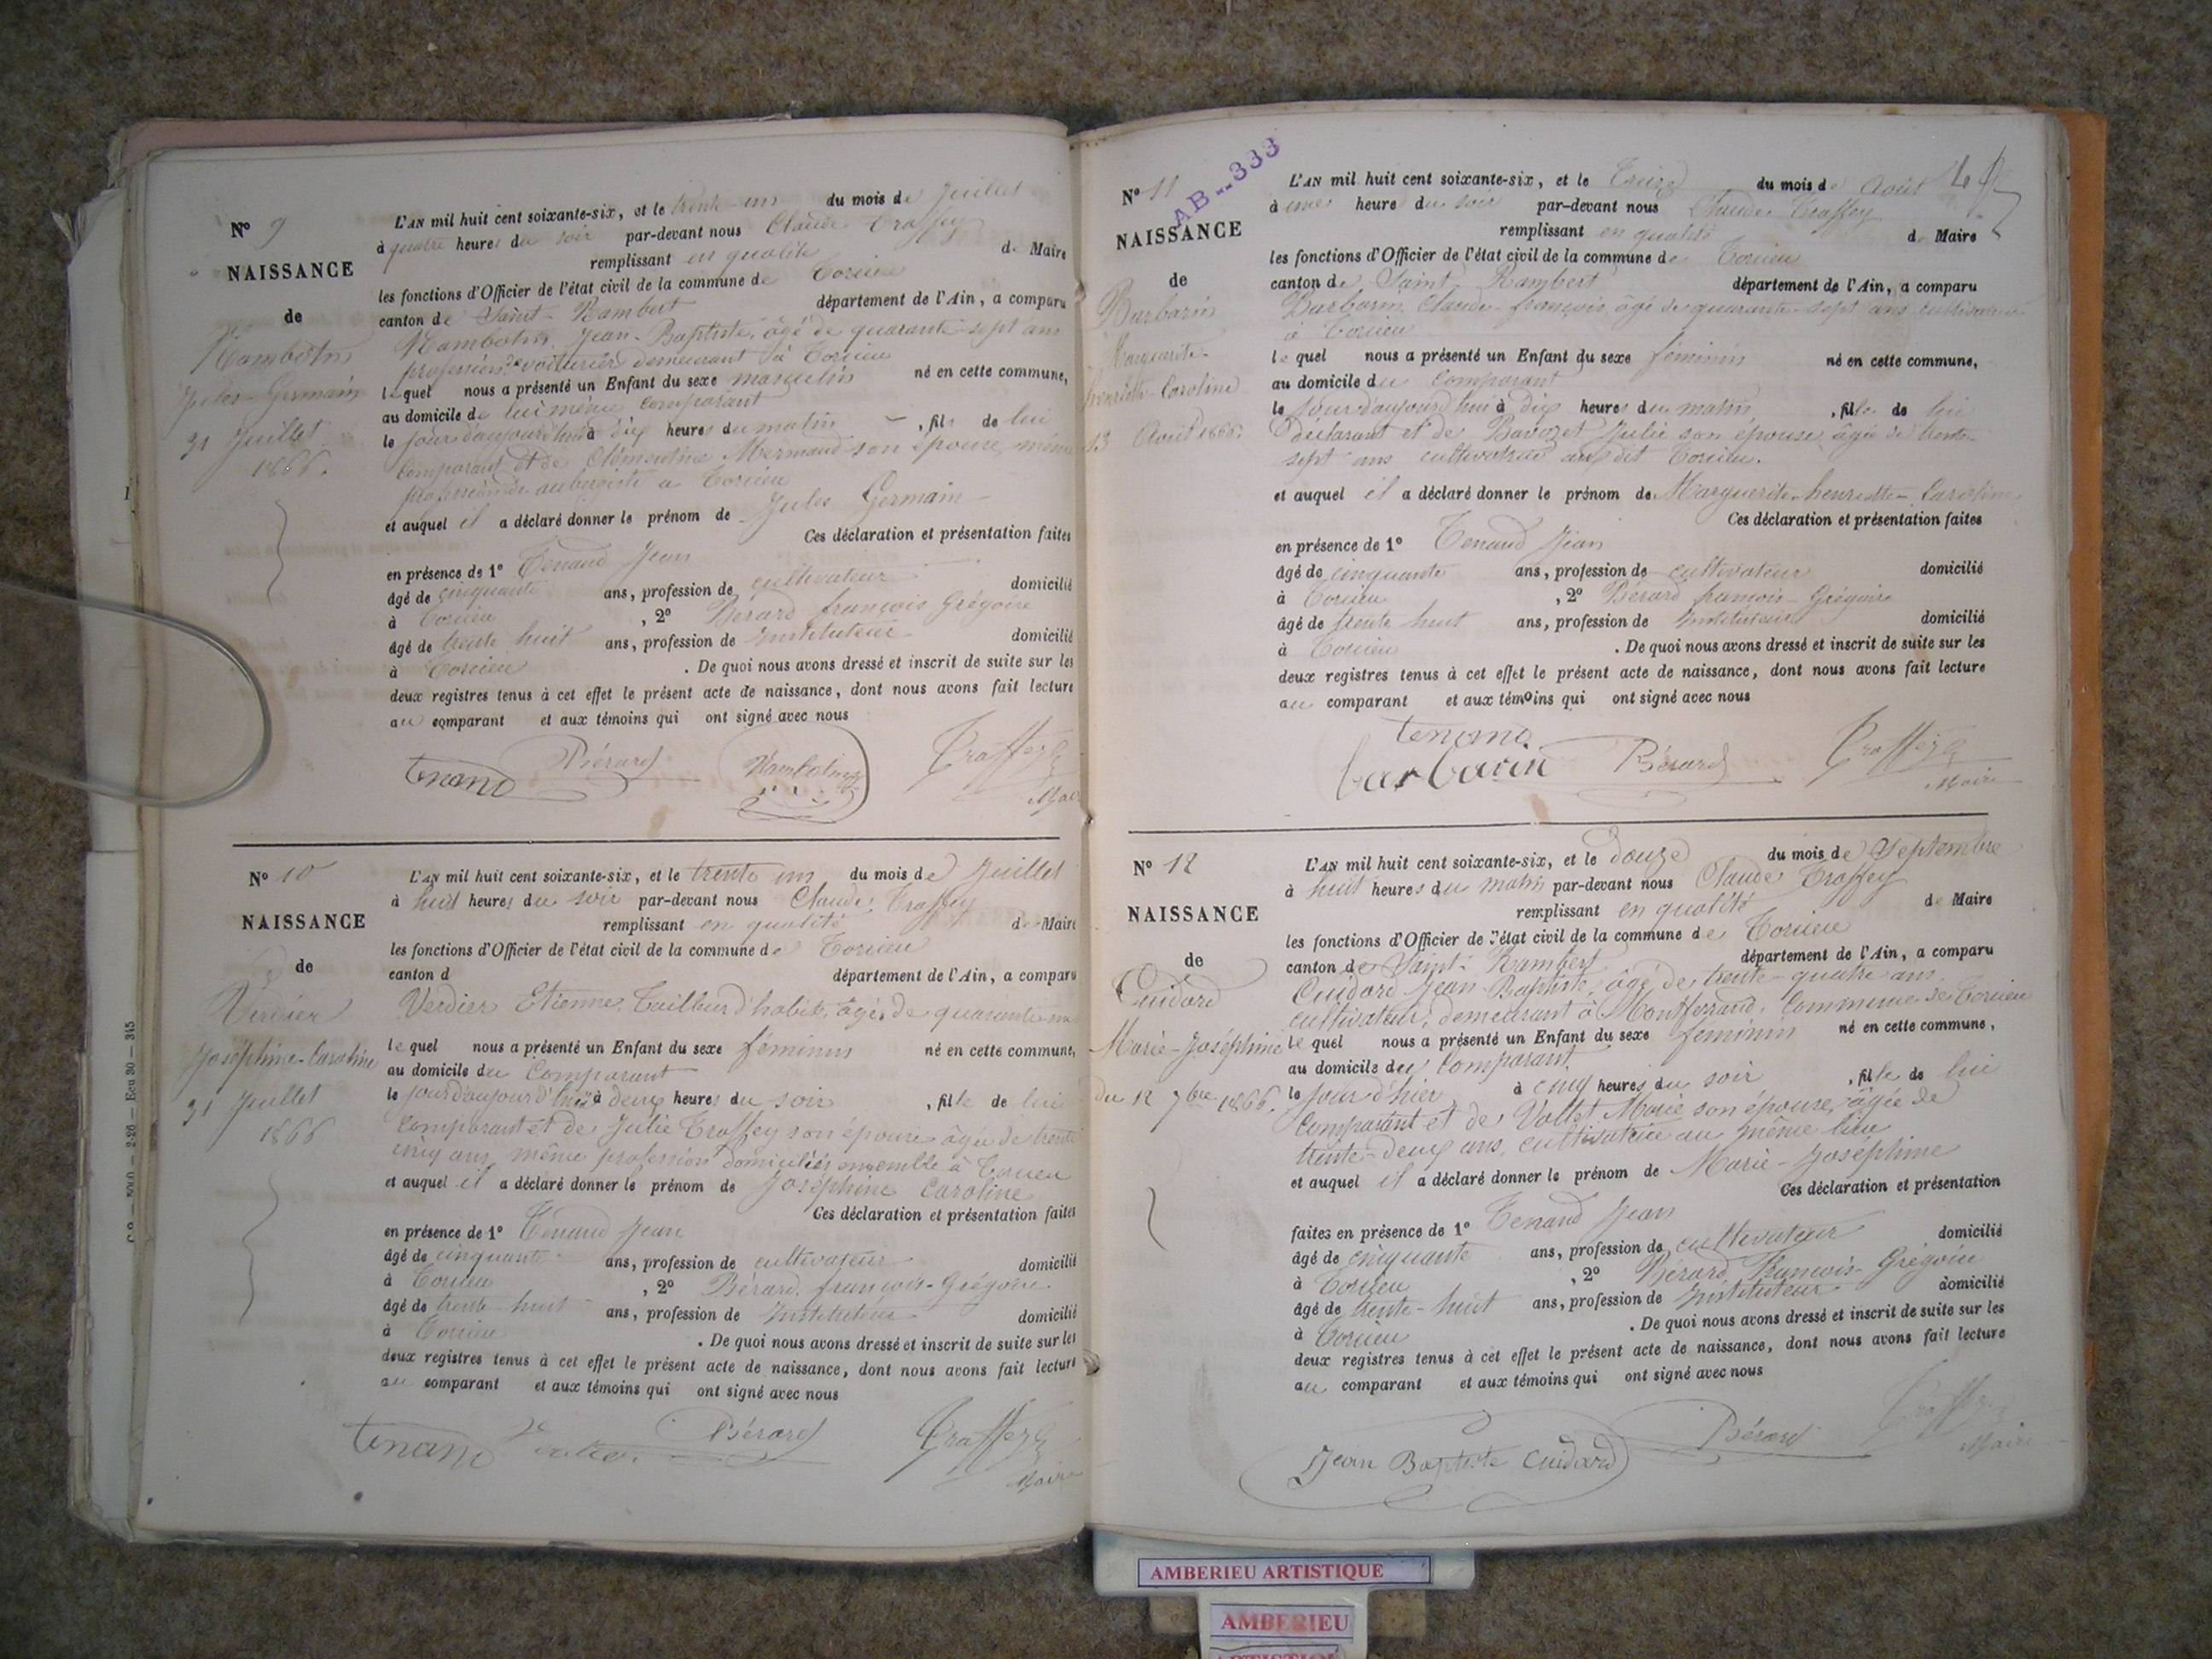 N° 9
NAISSANCE
de
Jules-Germain
31 Juillet
1866.
L'AN mil huit cent soixante-six, et le trente-un du mois de Juillet
à quatre heures du soir par-devant nous Claude Traffey
remplissant en qualité de Maire
les fonctions d'Officier de l'état civil de la commune de Torcieu
canton de Saint-Rambert département de l'Ain, a comparu
Jean-Baptiste, âgé de quarante-sept ans
profession de voiturier demeurant à Torcieu
lequel nous a présenté un Enfant du sexe masculin né en cette commune,
au domicile de lui même comparant
le jour d'aujourd'hui à dix heures du matin, fils de lui
comparant et de Clémentine Mermand son épouse, même
profession de aubergiste à Torcieu
et auquel il a déclaré donner le prénom de Jules Germain
Ces déclaration et présentation faites
en présence de 1° Tenand Jean
âgé de cinquante ans, profession de cultivateur domicilié
à Torcieu, 2° Bérard françois Grégoire
âgé de trente huit ans, profession de Instituteur domicilié
à Torcieu. De quoi nous avons dressé et inscrit de suite sur les
deux registres tenus à cet effet le présent acte de naissance, dont nous avons fait lecture
au comparant et aux témoins qui ont signé avec nous
tenand Bérard Traffey
Maire
N° 10
NAISSANCE
de
Verdier
Joséphine-Caroline
31 Juillet
1866
L'AN mil huit cent soixante-six, et le trente un du mois de Juillet
à huit heures du soir par-devant nous Claude Traffey
remplissant en qualité de Maire
les fonctions d'Officier de l'état civil de la commune de Torcieu
canton d département de l'Ain, a comparu
Verdier Etienne, Tailleur d'habits, âgé de quarante
lequel nous a présenté un Enfant du sexe féminin né en cette commune,
au domicile du Comparant
le jour d'aujourd'hui à deux heures du soir, fille de lui
comparant et de Julie Traffey son épouse âgée de trente
cinq ans, même profession domiciliés ensemble à Torcieu
et auquel il a déclaré donner le prénom de Joséphine Caroline
Ces déclaration et présentation faites
en présence de 1° Tenand Jean
âgé de cinquante ans, profession de cultivateur domicilié
à Torcieu, 2° Bérard françois-Grégoire
âgé de trente-huit ans, profession de Instituteur domicilié
à Torcieu. De quoi nous avons dressé et inscrit de suite sur les
deux registres tenus à cet effet le présent acte de naissance, dont nous avons fait lecture
au comparant et aux témoins qui ont signé avec nous
tenand Bérard Traffey
Maire
AB--333
N° 11
NAISSANCE
de
Barbarin
Marguerite-
henriette-Caroline
13 Août 1866.
L'AN mil huit cent soixante-six, et le Treize du mois de Août
à une heure du soir par-devant nous Claude Traffey
remplissant en qualité de Maire
les fonctions d'Officier de l'état civil de la commune de Torcieu
canton de Saint Rambert département de l'Ain, a comparu
Barbarin Claude-françois âgé de quarante-sept ans cultivateur
à Torcieu
lequel nous a présenté un Enfant du sexe féminin né en cette commune,
au domicile du Comparant
le jour d'aujourd'hui à dix heures du matin, fille de lui
déclarant et de Bavozet Julie son épouse, âgée de trente-
sept ans cultivatrice au dit Torcieu.
et auquel il a déclaré donner le prénom de Marguerite-henriette-Caroline
Ces déclaration et présentation faites
en présence de 1° Tenand Jean
âgé de cinquante ans, profession de cultivateur domicilié
à Torcieu, 2° Bérard françois-Grégoire
âgé de trente huit ans, profession de Instituteur domicilié
à Torcieu. De quoi nous avons dressé et inscrit de suite sur les
deux registres tenus à cet effet le présent acte de naissance, dont nous avons fait lecture
au comparant et aux témoins qui ont signé avec nous
tenand
barbarin Bérard Traffey
Maire
N° 12
NAISSANCE
de
Cuidard
Marie-Joséphine
du 12 7bre 1866.
L'AN mil huit cent soixante-six, et le douze du mois de Septembre
à huit heures du matin par-devant nous Claude Traffey
remplissant en qualité de Maire
les fonctions d'Officier de l'état civil de la commune de Torcieu
canton de Saint-Rambert département de l'Ain, a comparu
Cuidard Jean-Baptiste, âgé de trente-quatre ans
cultivateur, demeurant à Montferrand, Commune de Torcieu
lequel nous a présenté un Enfant du sexe féminin né en cette commune,
au domicile du Comparant
le jour d'hier, à cinq heures du soir, fille de lui
Comparant et de Vallet Marie son épouse, âgée de
trente-deux ans, cultivatrice au même lieu
et auquel il a déclaré donner le prénom de Marie-Joséphine
Ces déclaration et présentation
faites en présence de 1° Tenand Jean
âgé de cinquante ans, profession de cultivateur domicilié
à Torcieu, 2° Bérard François-Grégoire
âgé de trente-huit ans, profession de Instituteur domicilié
à Torcieu. De quoi nous avons dressé et inscrit de suite sur les
deux registres tenus à cet effet le présent acte de naissance, dont nous avons fait lecture
au comparant et aux témoins qui ont signé avec nous
Jean Baptiste Cuidard Bérard Traffey
Maire
AMBERIEU ARTISTIQUE
AMBERIEU
ARTISTIQUE